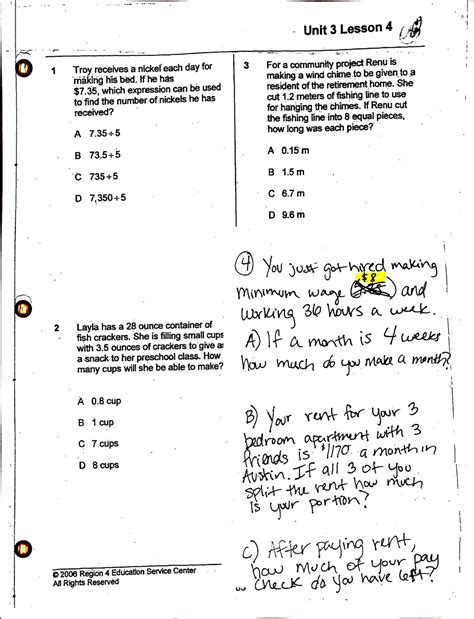 Unit 3 Lesson 4
1 Troy receives a nickel each day for
making his bed. If he has
$7.35, which expression can be used
to find the number of nickels he has
received?
A 7.35÷5
B 73.5÷5
C 735÷5
D 7,350÷5
2 Layla has a 28 ounce container of
fish crackers. She is filling small cups
with 3.5 ounces of crackers to give as
a snack to her preschool class. How
many cups will she be able to make?
A 0.8 cup
B 1 cup
C 7 cups
D 8 cups
© 2006 Region 4 Education Service Center
All Rights Reserved
3 For a community project Renu is
making a wind chime to be given to a
resident of the retirement home. She
cut 1.2 meters of fishing line to use
for hanging the chimes. If Renu cut
the fishing line into 8 equal pieces,
how long was each piece?
A 0.15 m
B 1.5 m
C 6.7 m
D 9.6 m
④ You just got hired making
$8
minimum wage ( ) and
working 36 hours a week.
A) If a month is 4 weeks
how much do you make a month?
B) Your rent for your 3
bedroom apartment with 3
friends is $1170 a month in
Austin. If all 3 of you
split the rent how much
is your portion?
C) After paying rent,
how much of your pay
check do you have left?